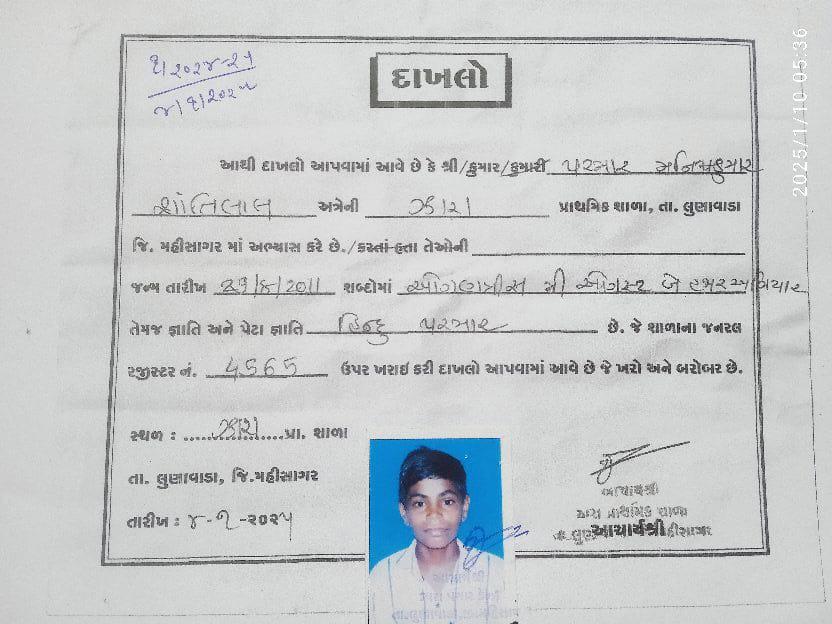 ૧/૨૦૨૪-૨૫
૪/૧/૨૦૨૫
દાખલો
આથી દાખલો આપવામાં આવે છે કે શ્રી/કુમાર/કુમારી પરમાર મનિષકુમાર
શાંતિલાલ અત્રેની ઝારા પ્રાથમિક શાળા, તા. લુણાવાડા
જિ. મહીસાગર માં અભ્યાસ કરે છે./કરતાં હતા તેઓની
જન્મ તારીખ 29/8/2011 શબ્દોમાં ઓગણત્રીસ મી ઓગસ્ટ બે હજાર અગિયાર
તેમજ જ્ઞાતિ અને પેટા જ્ઞાતિ હિન્દુ પરમાર છે. જે શાળાના જનરલ
રજીસ્ટર નં. 4565 ઉપર ખરાઇ કરી દાખલો આપવામાં આવે છે જે ખરો અને બરોબર છે.
સ્થળ : ઝારા પ્રા. શાળા
તા. લુણાવાડા, જિ.મહીસાગર
તારીખ : ૪-૧-૨૦૨૫
આચાર્યશ્રી
ઝારા પ્રાથમિક શાળા
આચાર્યશ્રી
2025/1/10 05:36